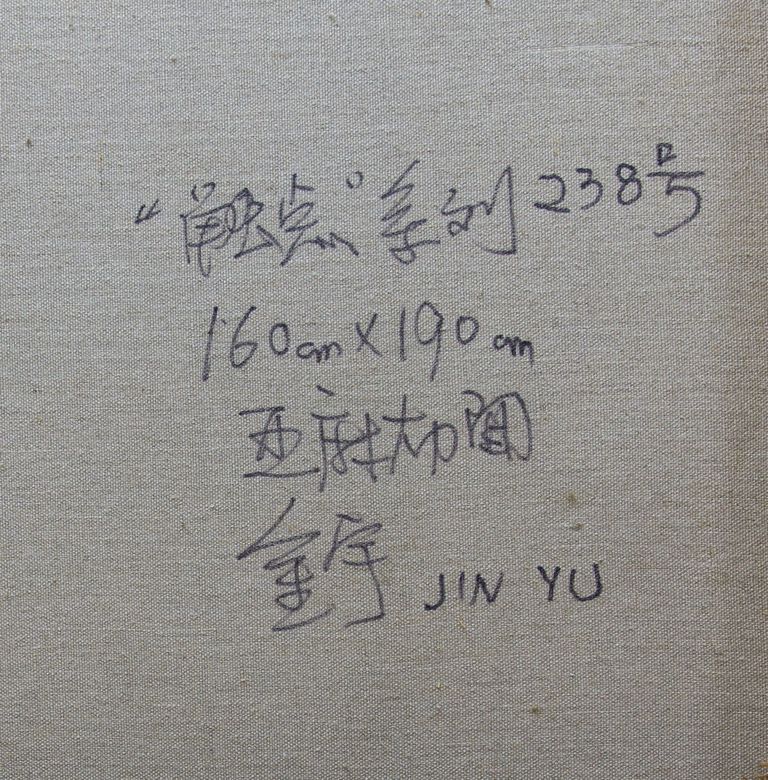 "触点"系列238号
160cm×190cm
亚麻布
金宇 JIN YU